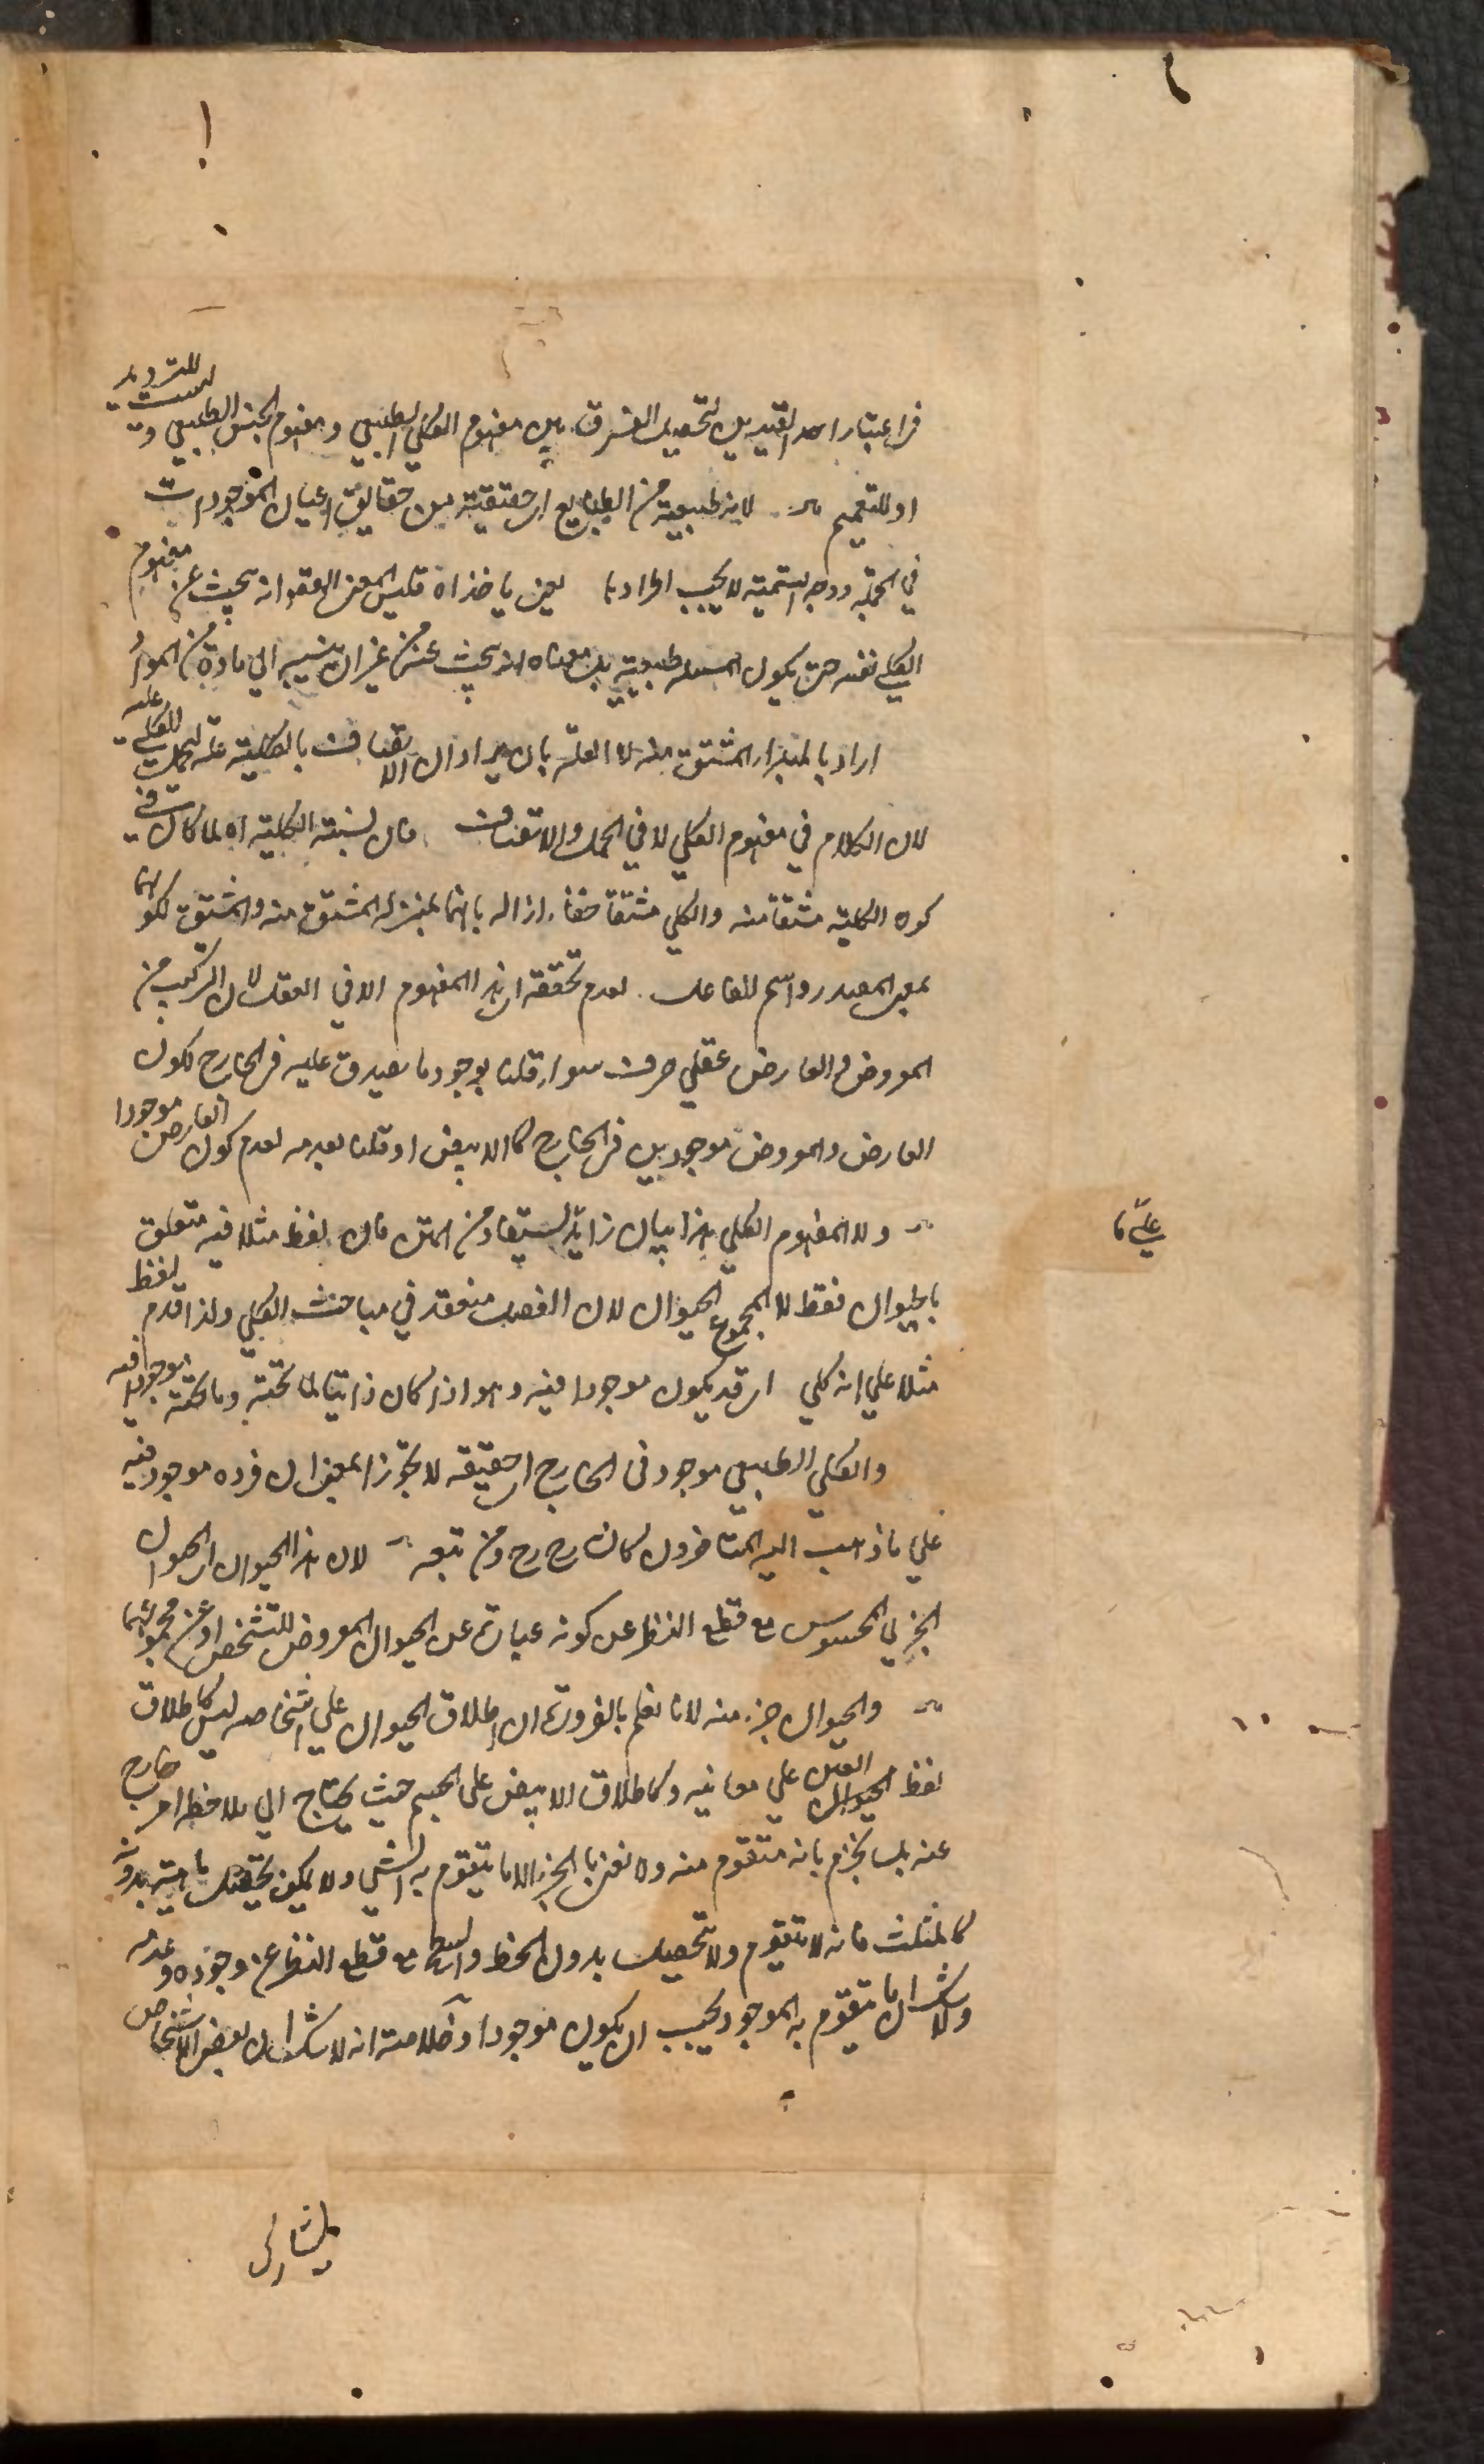 في اعتبار احد القيدين لتحصيل الفرق بين مفهوم الكلي الطبيعي ومفهوم الجنس الطبيعي وليست للترديد
او للتعميم لانه طبيعة من الطبايع اي حقيقة من حقايق اعيان الموجودات
في الجملة ووجه التسمية لا يجب اطرادها يعني ياخذ اه فليس المعنى انه يبحث عن مفهوم
الكلي نفسه حتى يكون المسئلة طبيعية بل معناه انه يبحث عنه من غير ان ينسب الي مادة من المواد
اراد بالمبدا المشتق منه لا العلة بان يراد ان الاتصاف بالكلية علة لحمل الكلي عليه
لان الكلام في مفهوم الكلي لا في الحمل والاتصاف فان نسبة الكلية اه لما كان في
كون الكلية مشتقا منه والكلي مشتقا خفاء ازاله بانهما بمنزلة المشتق منه والمشتق لكونهما
بمعنى المصدر واسم الفاعل لعدم تحققه اي هذا المفهوم الا في العقل لان التركيب من
المعروض والعارض عقلي صرف سواء قلنا بوجود ما يصدق عليه في الخارج لكون
العارض والمعروض موجودين في الخارج كالابيض او قلنا بعدمه لعدم كون العارض موجودا
ولا المفهوم الكلي هذا بيان زائد يستفاد من المتن فان لفظ مثلا فيه متعلق
بالحيوان فقط لا لمجموع الحيوان لان الفصل منعقد في مباحث الكلي ولذا قدم لفظ
مثلا علي انه كلي اي قد يكون موجودا فيه وهو اذا كان ذاتيا لما تحته وما تحته موجودا فيه
والكلي الطبيعي موجود في الخارج اي حقيقة لا تجوزا بمعنى ان فرده موجود فيه
علي ما ذهب اليه المتاخرون كالشارح رح ومن تبعه لان هذا الحيوان اي الحيوان
الجزئي المحسوس مع قطع النظر عن كونه عبارة عن الحيوان المعروض للتشخص او عن مجموعهما
والحيوان جزء منه لانا نعلم بالضرورة ان اطلاق الحيوان علي اشخاصه ليس كاطلاق
لفظ العين علي معانيه وكاطلاق الابيض علي الجسم حيث يحتاج الي ملاحظة امر خارج
عنه بل نجزم بانه متقوم منه ولا نعني بالجزء الا ما يتقوم به الشي ولا يمكن تحصل ماهيته بدونه
كالمثلث فانه لا يتقوم ولا يتحصل بدون الخط والسطح مع قطع النظر عن وجوده وعدمه
ولا شك ان ما يتقوم به الموجود يجب ان يكون موجودا وخلاصته انه لا شك ان بعض الاشخاص
يشارك